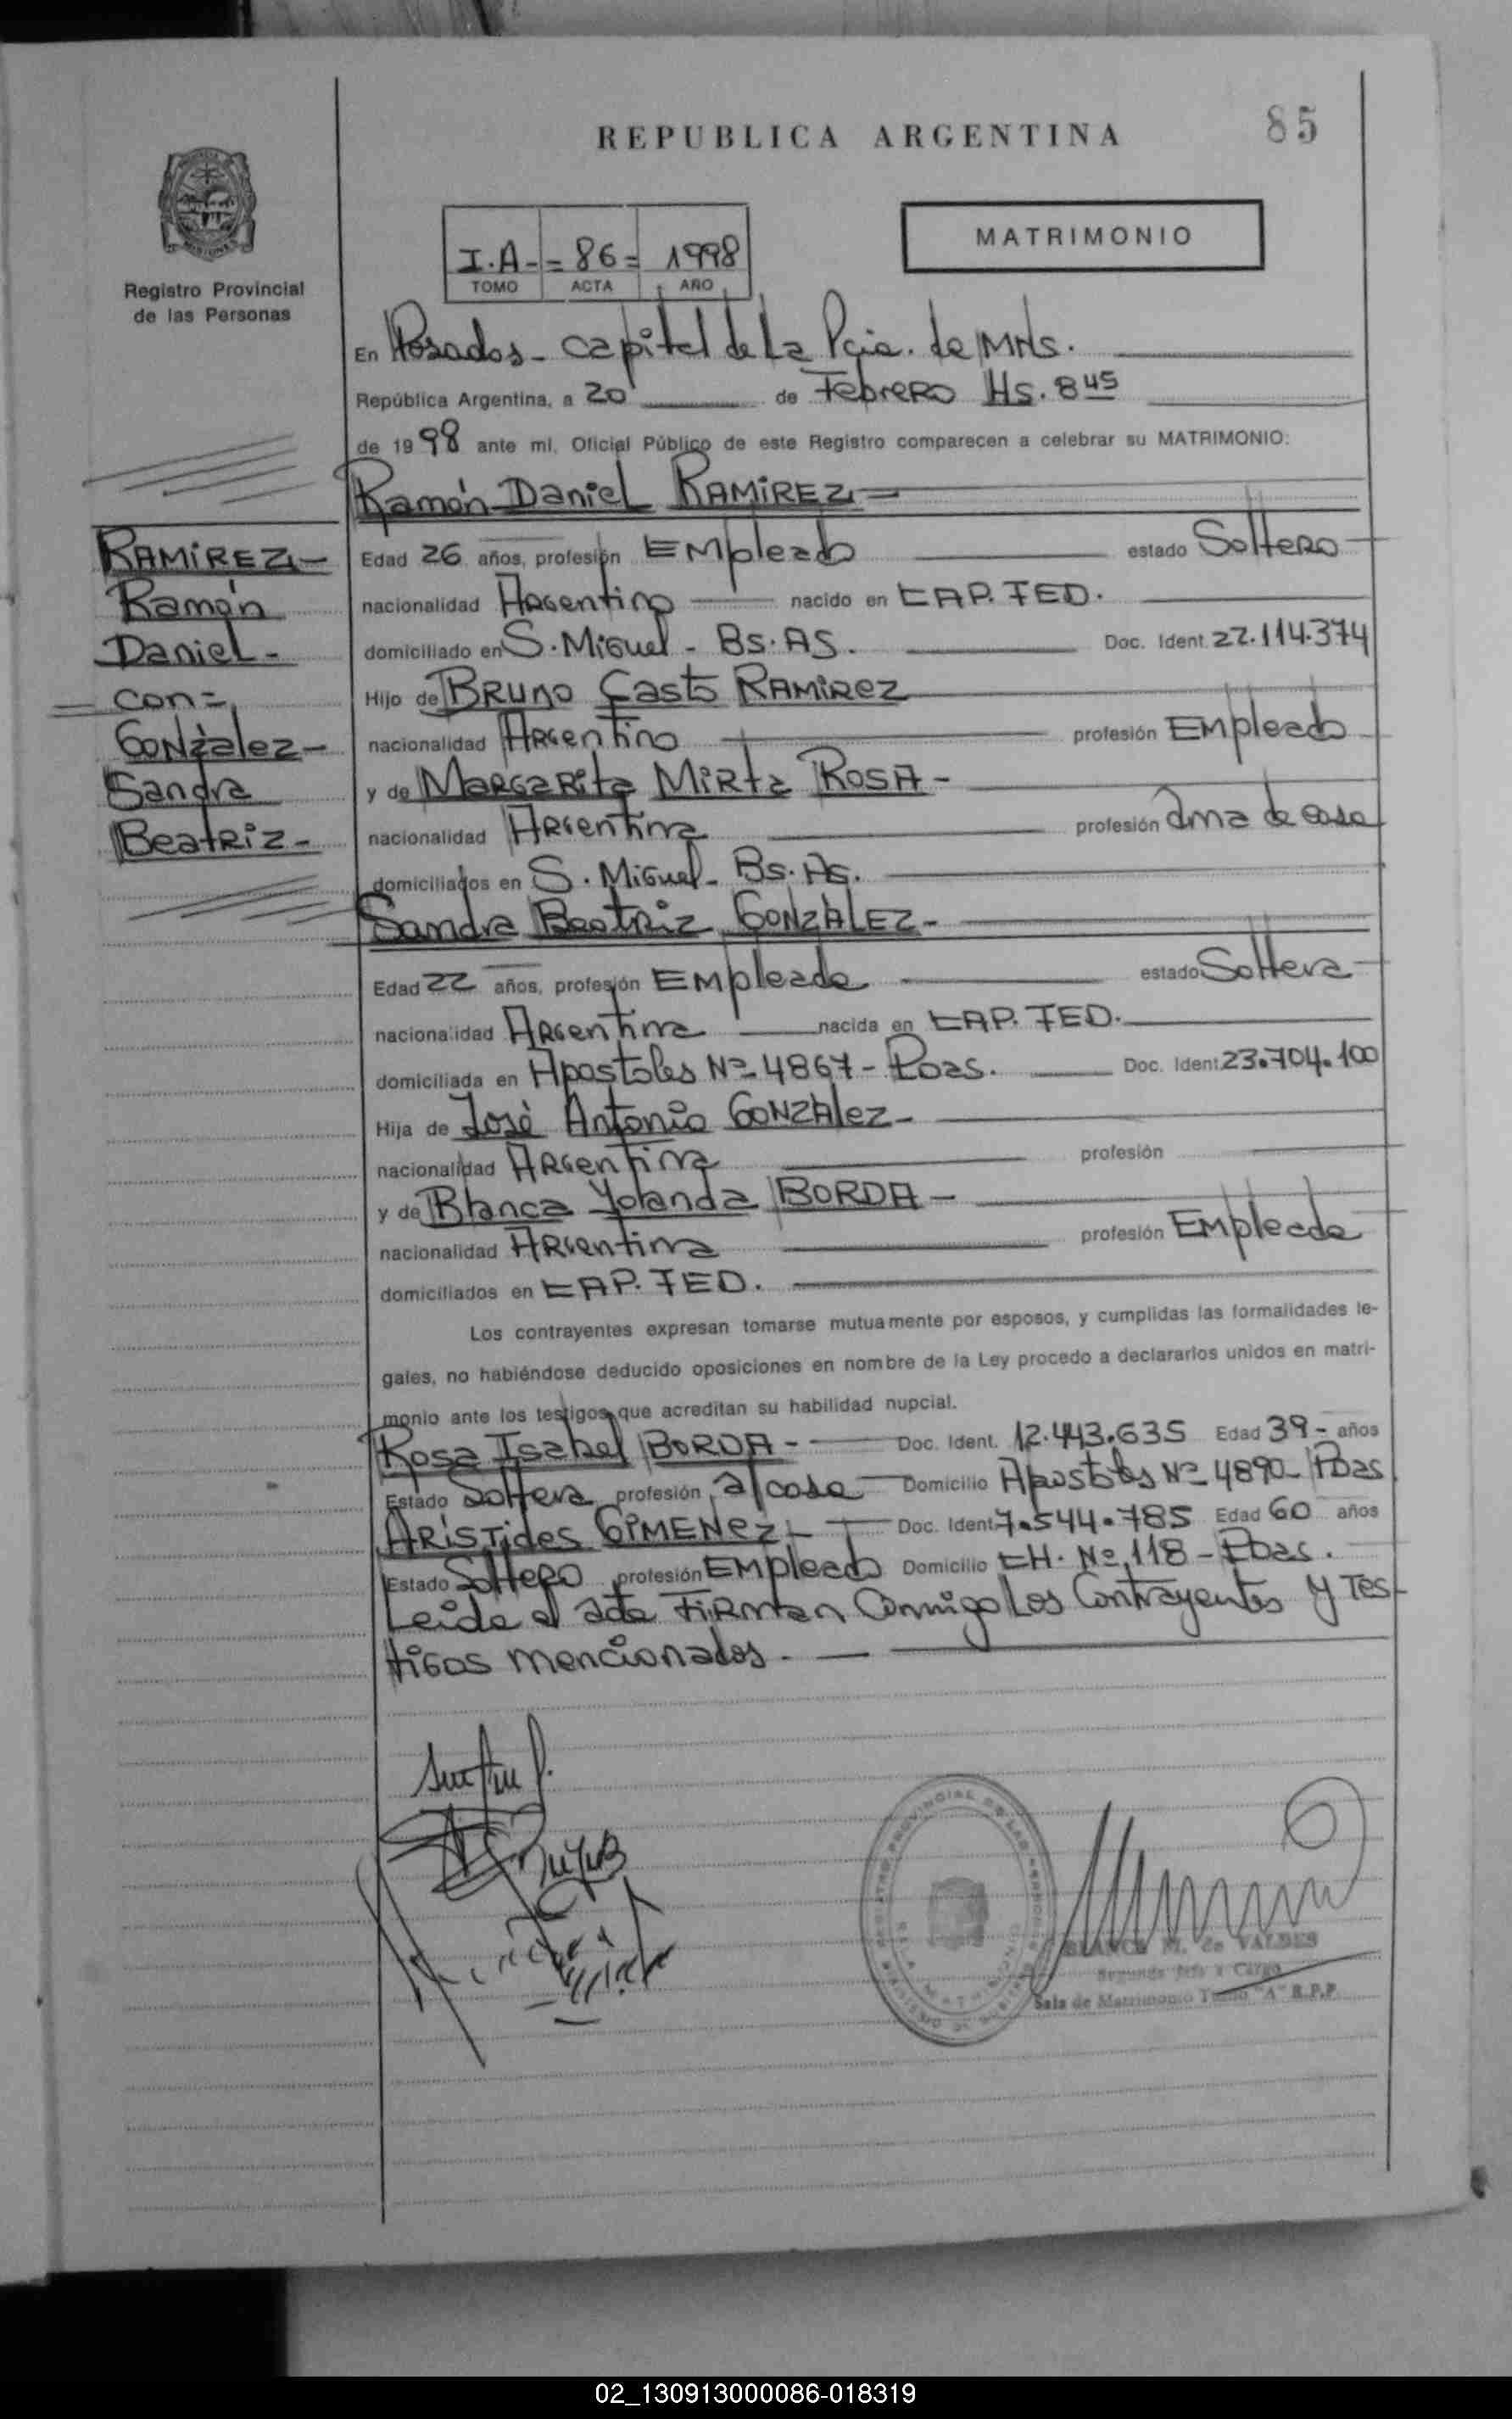 85
REPUBLICA ARGENTINA
MATRIMONIO
I.A- = 86 = 1998
TOMO ACTA AÑO
Registro Provincial
de las Personas
En Posadas - Capital de La Pcia. de MNs.
República Argentina, a 20 de Febrero Hs. 8 45
de 1998 ante mí, Oficial Público de este Registro comparecen a celebrar su MATRIMONIO:
Ramón Daniel RAMIREZ
RAMIREZ-
Ramón
Daniel-
con=
González-
Sandra
Beatriz-
Edad 26 años, profesión Empleado estado Soltero
nacionalidad Argentino nacido en CAP. FED.
domiciliado en S. Miguel - Bs. As. Doc. Ident. 22.114.374
Hijo de Bruno Casto Ramirez
nacionalidad Argentino profesión Empleado
y de Margarita Mirta ROSA-
nacionalidad Argentina profesión ama de casa
domiciliados en S. Miguel - Bs. As.
Sandra Beatriz GONZALEZ-
Edad 22 años, profesión Empleada estado Soltera
nacionalidad Argentina nacida en CAP. FED.
domiciliada en Apostoles Nº 4867 - Pdas. Doc. Ident. 23.704.100
Hija de José Antonio GONZALEZ-
nacionalidad Argentina profesión
y de Blanca Yolanda BORDA-
nacionalidad Argentina profesión Empleada
domiciliados en CAP. FED.
Los contrayentes expresan tomarse mutuamente por esposos, y cumplidas las formalidades le-
gales, no habiéndose deducido oposiciones en nombre de la Ley procedo a declararlos unidos en matri-
monio ante los testigos que acreditan su habilidad nupcial.
Rosa Isabel BORDA- Doc. Ident. 12.443.635 Edad 39- años
Estado Soltera profesión a/casa Domicilio Apostoles Nº 4890- Pdas
Arístides GIMENEZ- Doc. Ident. 7.544.785 Edad 60 años
Estado Soltero profesión Empleado Domicilio CH. Nº 118 - Pdas.
Leida el acta Firman Conmigo Los Contrayentes y Tes-
tigos mencionados.-
BLANCA M. de VALDES
Segundo Jefe a Cargo
Sala de Matrimonio Tomo "A" R.P.P.
02_130913000086-018319